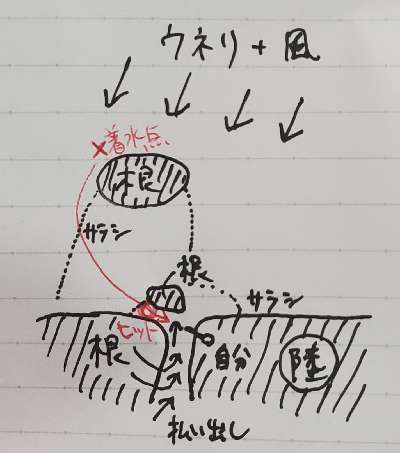 ウネリ + 風
×着水点
根
サラシ
根
サラシ
ヒット
根
自分
陸
払い出し